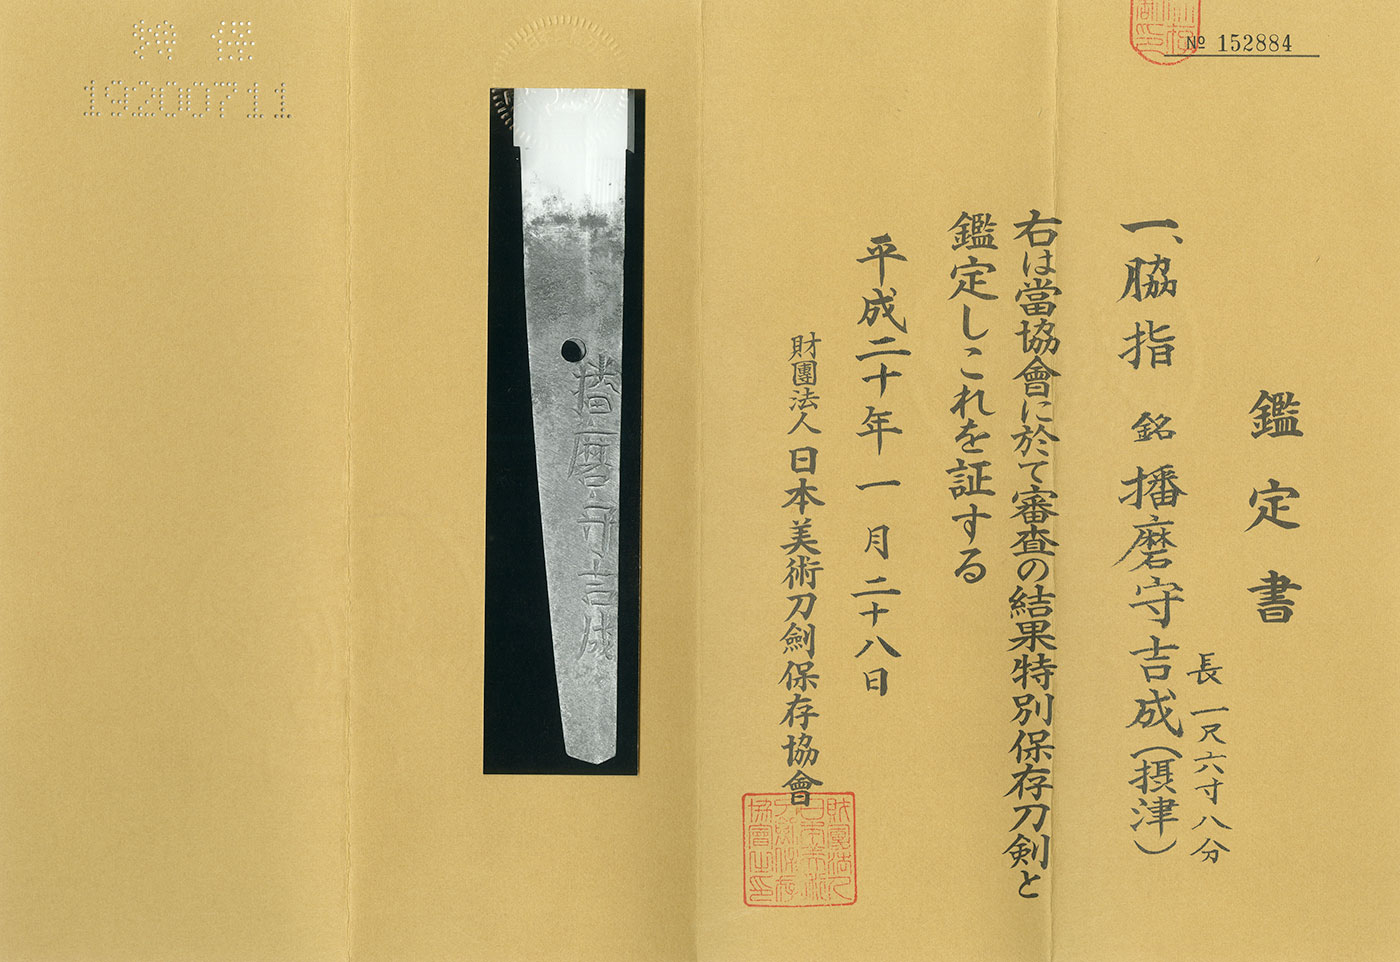 № 152884
鑑定書
一、脇指 銘 播磨守吉成(摂津)
長一尺六寸八分
右は當協會に於て審査の結果特別保存刀剣と
鑑定しこれを証する
平成二十年一月二十八日
財團法人 日本美術刀劍保存協會
播磨守吉成
特保
19200711